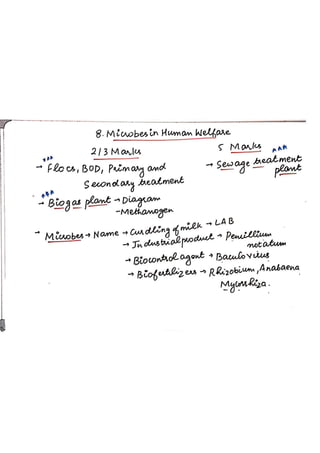 8. Microbes in Human Welfare
2/3 Marks
5 Marks
→ Flocs, BOD, Primary and
Secondary treatment
→ Sewage treatment
plant
→ Biogas plant → Diagram
→ Methanogen
→ Microbes → Name → Curdling of milk → LAB
→ Industrial product → Penicillium
notatum
→ Biocontrol agent → Baculovirus
→ Biofertilizers → Rhizobium, Anabaena
Mycorrhiza.